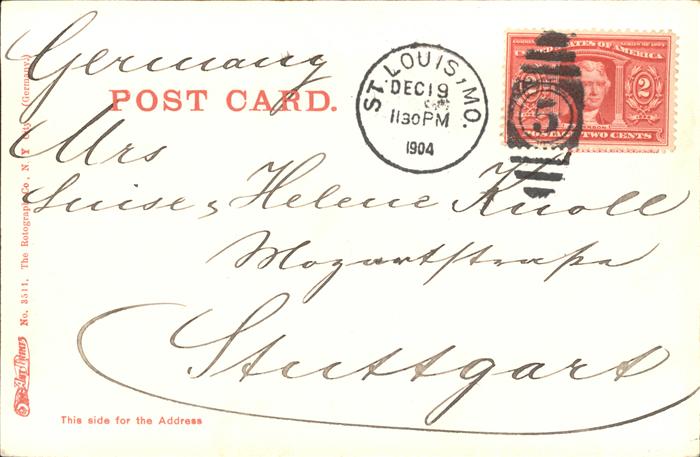 Germany
POST CARD.
ST. LOUIS, MO.
DEC 19
11 30 PM
1904
UNITED STATES OF AMERICA
2
2
POSTAGE TWO CENTS
5
Mrs
Luise, Helene Knoll
Mozartstraße
Stuttgart
This side for the Address
No. 3511. The Rotograph Co., N. Y. City (Germany.)